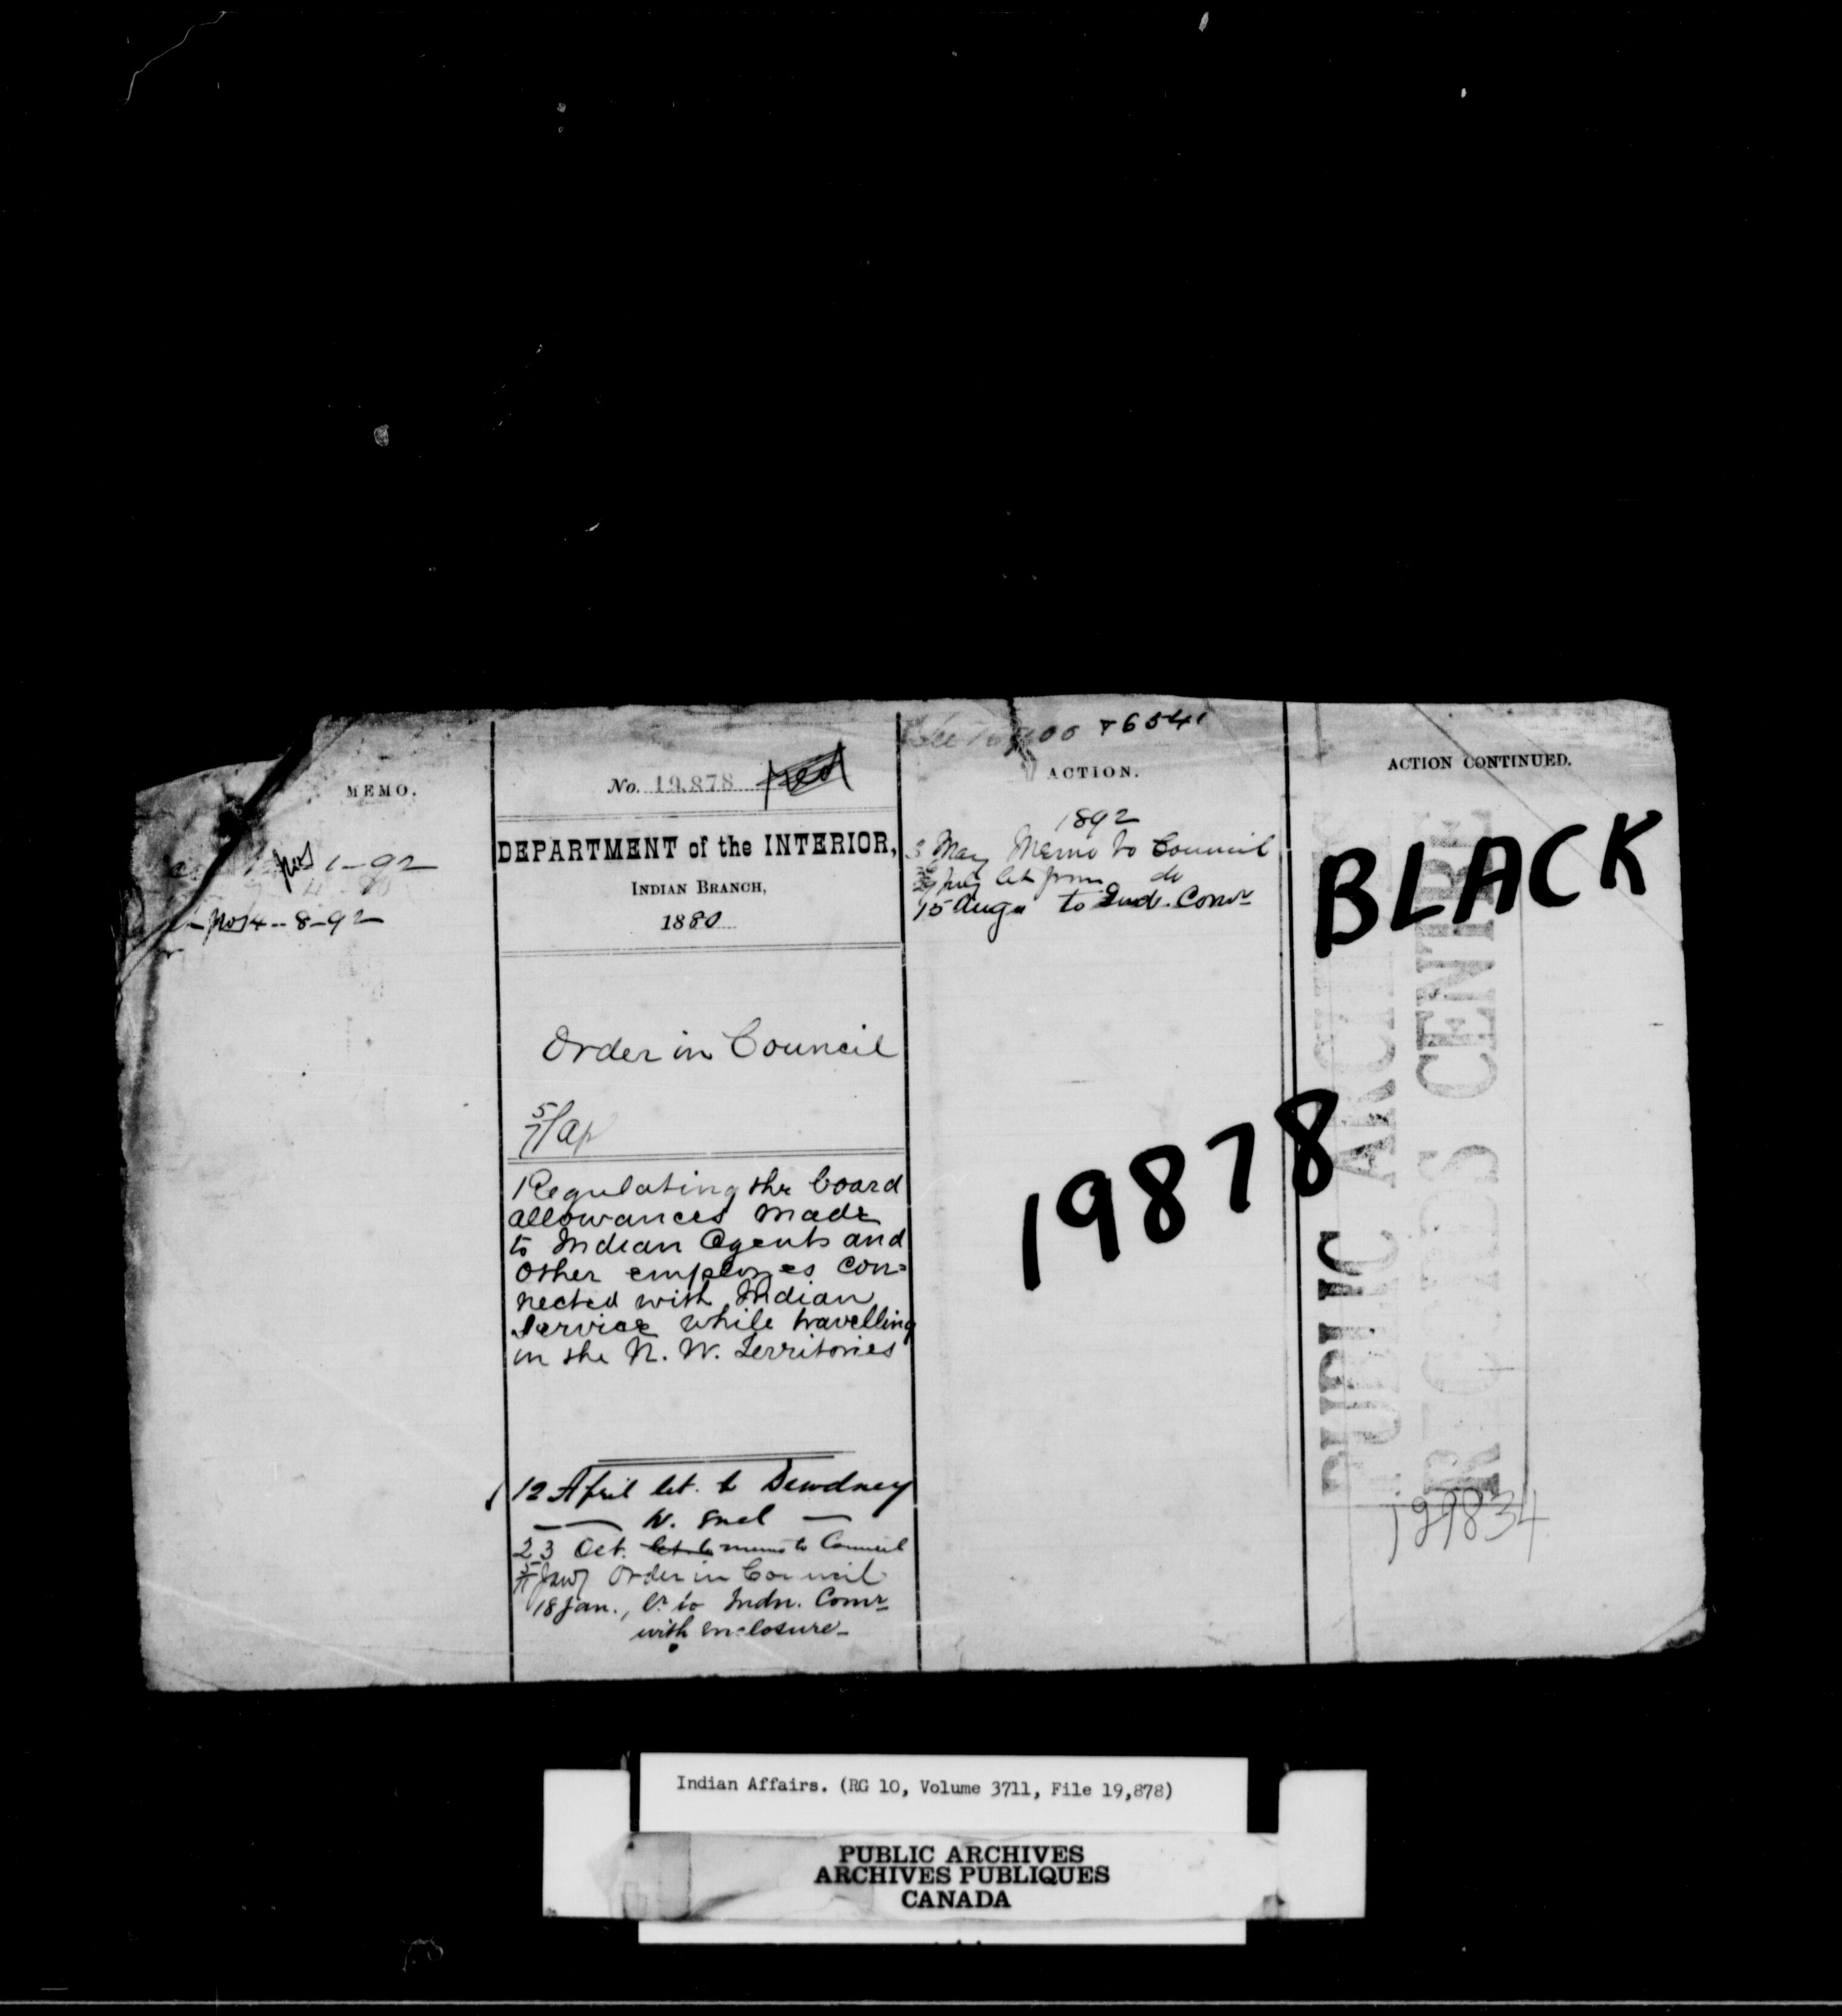 MEMO.
1-92
4-8-92
No. 19,878
DEPARTMENT of the INTERIOR,
INDIAN BRANCH,
1880
Order in Council
5/7/Ap
Regulating the board
allowances made
to Indian Agents and
other employes con=
nected with Indian
Service while travelling
in the N. W. Territories
12 April let. to Dewdney
W. Encl
23 Oct. let to memo to Council
Jany Order in Council
18 Jan., Lr to Indn. Comr
with enclosure
76541
ACTION.
1892
3 May Memo to Council
let from do
15 Augu to Ind. Comr
19878
ACTION CONTINUED.
BLACK
PUBLIC ARCHIVES
RECORDS CENTRE
129834
Indian Affairs. (RG 10, Volume 3711, File 19,878)
PUBLIC ARCHIVES
ARCHIVES PUBLIQUES
CANADA